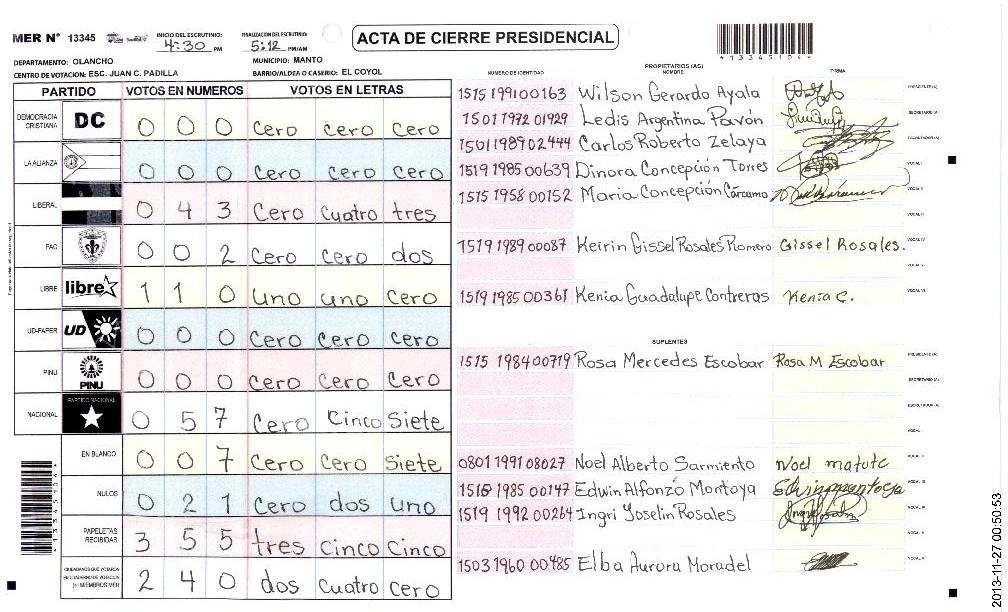 MER Nº 13345
INICIO DEL ESCRUTINIO: 4:30 PM
FINALIZACION DEL ESCRUTINIO: 5:12 PM/AM
ACTA DE CIERRE PRESIDENCIAL
*13345104*
DEPARTAMENTO: OLANCHO
MUNICIPIO: MANTO
CENTRO DE VOTACION: ESC. JUAN C. PADILLA
BARRIO/ALDEA O CASERIO: EL COYOL
PARTIDO VOTOS EN NUMEROS VOTOS EN LETRAS
DEMOCRACIA CRISTIANA DC 0 0 0 Cero cero cero
LA ALIANZA 0 0 0 Cero cero cero
LIBERAL 0 4 3 Cero cuatro tres
PAC 0 0 2 Cero cero dos
LIBRE libre 1 1 0 uno uno cero
UD-FAPER UD 0 0 0 Cero cero cero
PINU PINU 0 0 0 Cero cero cero
NACIONAL PARTIDO NACIONAL 0 5 7 Cero Cinco Siete
EN BLANCO 0 0 7 Cero Cero Siete
NULOS 0 2 1 Cero dos uno
PAPELETAS RECIBIDAS 3 5 5 tres Cinco Cinco
CIUDADANOS QUE VOTARON EN CUADERNO DE VOTACION (+) MIEMBROS MER 2 4 0 dos Cuatro cero
PROPIETARIOS (AS)
NUMERO DE IDENTIDAD NOMBRE FIRMA
1515 1991 00163 Wilson Gerardo Ayala PRESIDENTE (A)
1501 1972 01929 Ledis Argentina Pavón SECRETARIO (A)
1501 1989 02444 Carlos Roberto Zelaya ESCRUTADOR (A)
1519 1985 00639 Dinora Concepción Torres VOCAL I
1515 1958 00152 Maria Concepción Cárcamo VOCAL II
VOCAL III
1519 1989 00087 Keirin Gissel Rosales Romero Gissel Rosales. VOCAL IV
VOCAL V
1519 1985 00361 Kenia Guadalupe Contreras Kenia C. VOCAL VI
SUPLENTES
1515 1984 00719 Rosa Mercedes Escobar Rosa M Escobar PRESIDENTE (A)
SECRETARIO (A)
ESCRUTADOR (A)
VOCAL I
0801 1991 08027 Noel Alberto Sarmiento Noel matute VOCAL II
1515 1985 00147 Edwin Alfonzo Montoya VOCAL III
1519 1992 00264 Ingri Yoselin Rosales VOCAL IV
VOCAL V
1503 1960 00485 Elba Aurora Moradel VOCAL VI
*1334510
2013-11-27 00:50:53